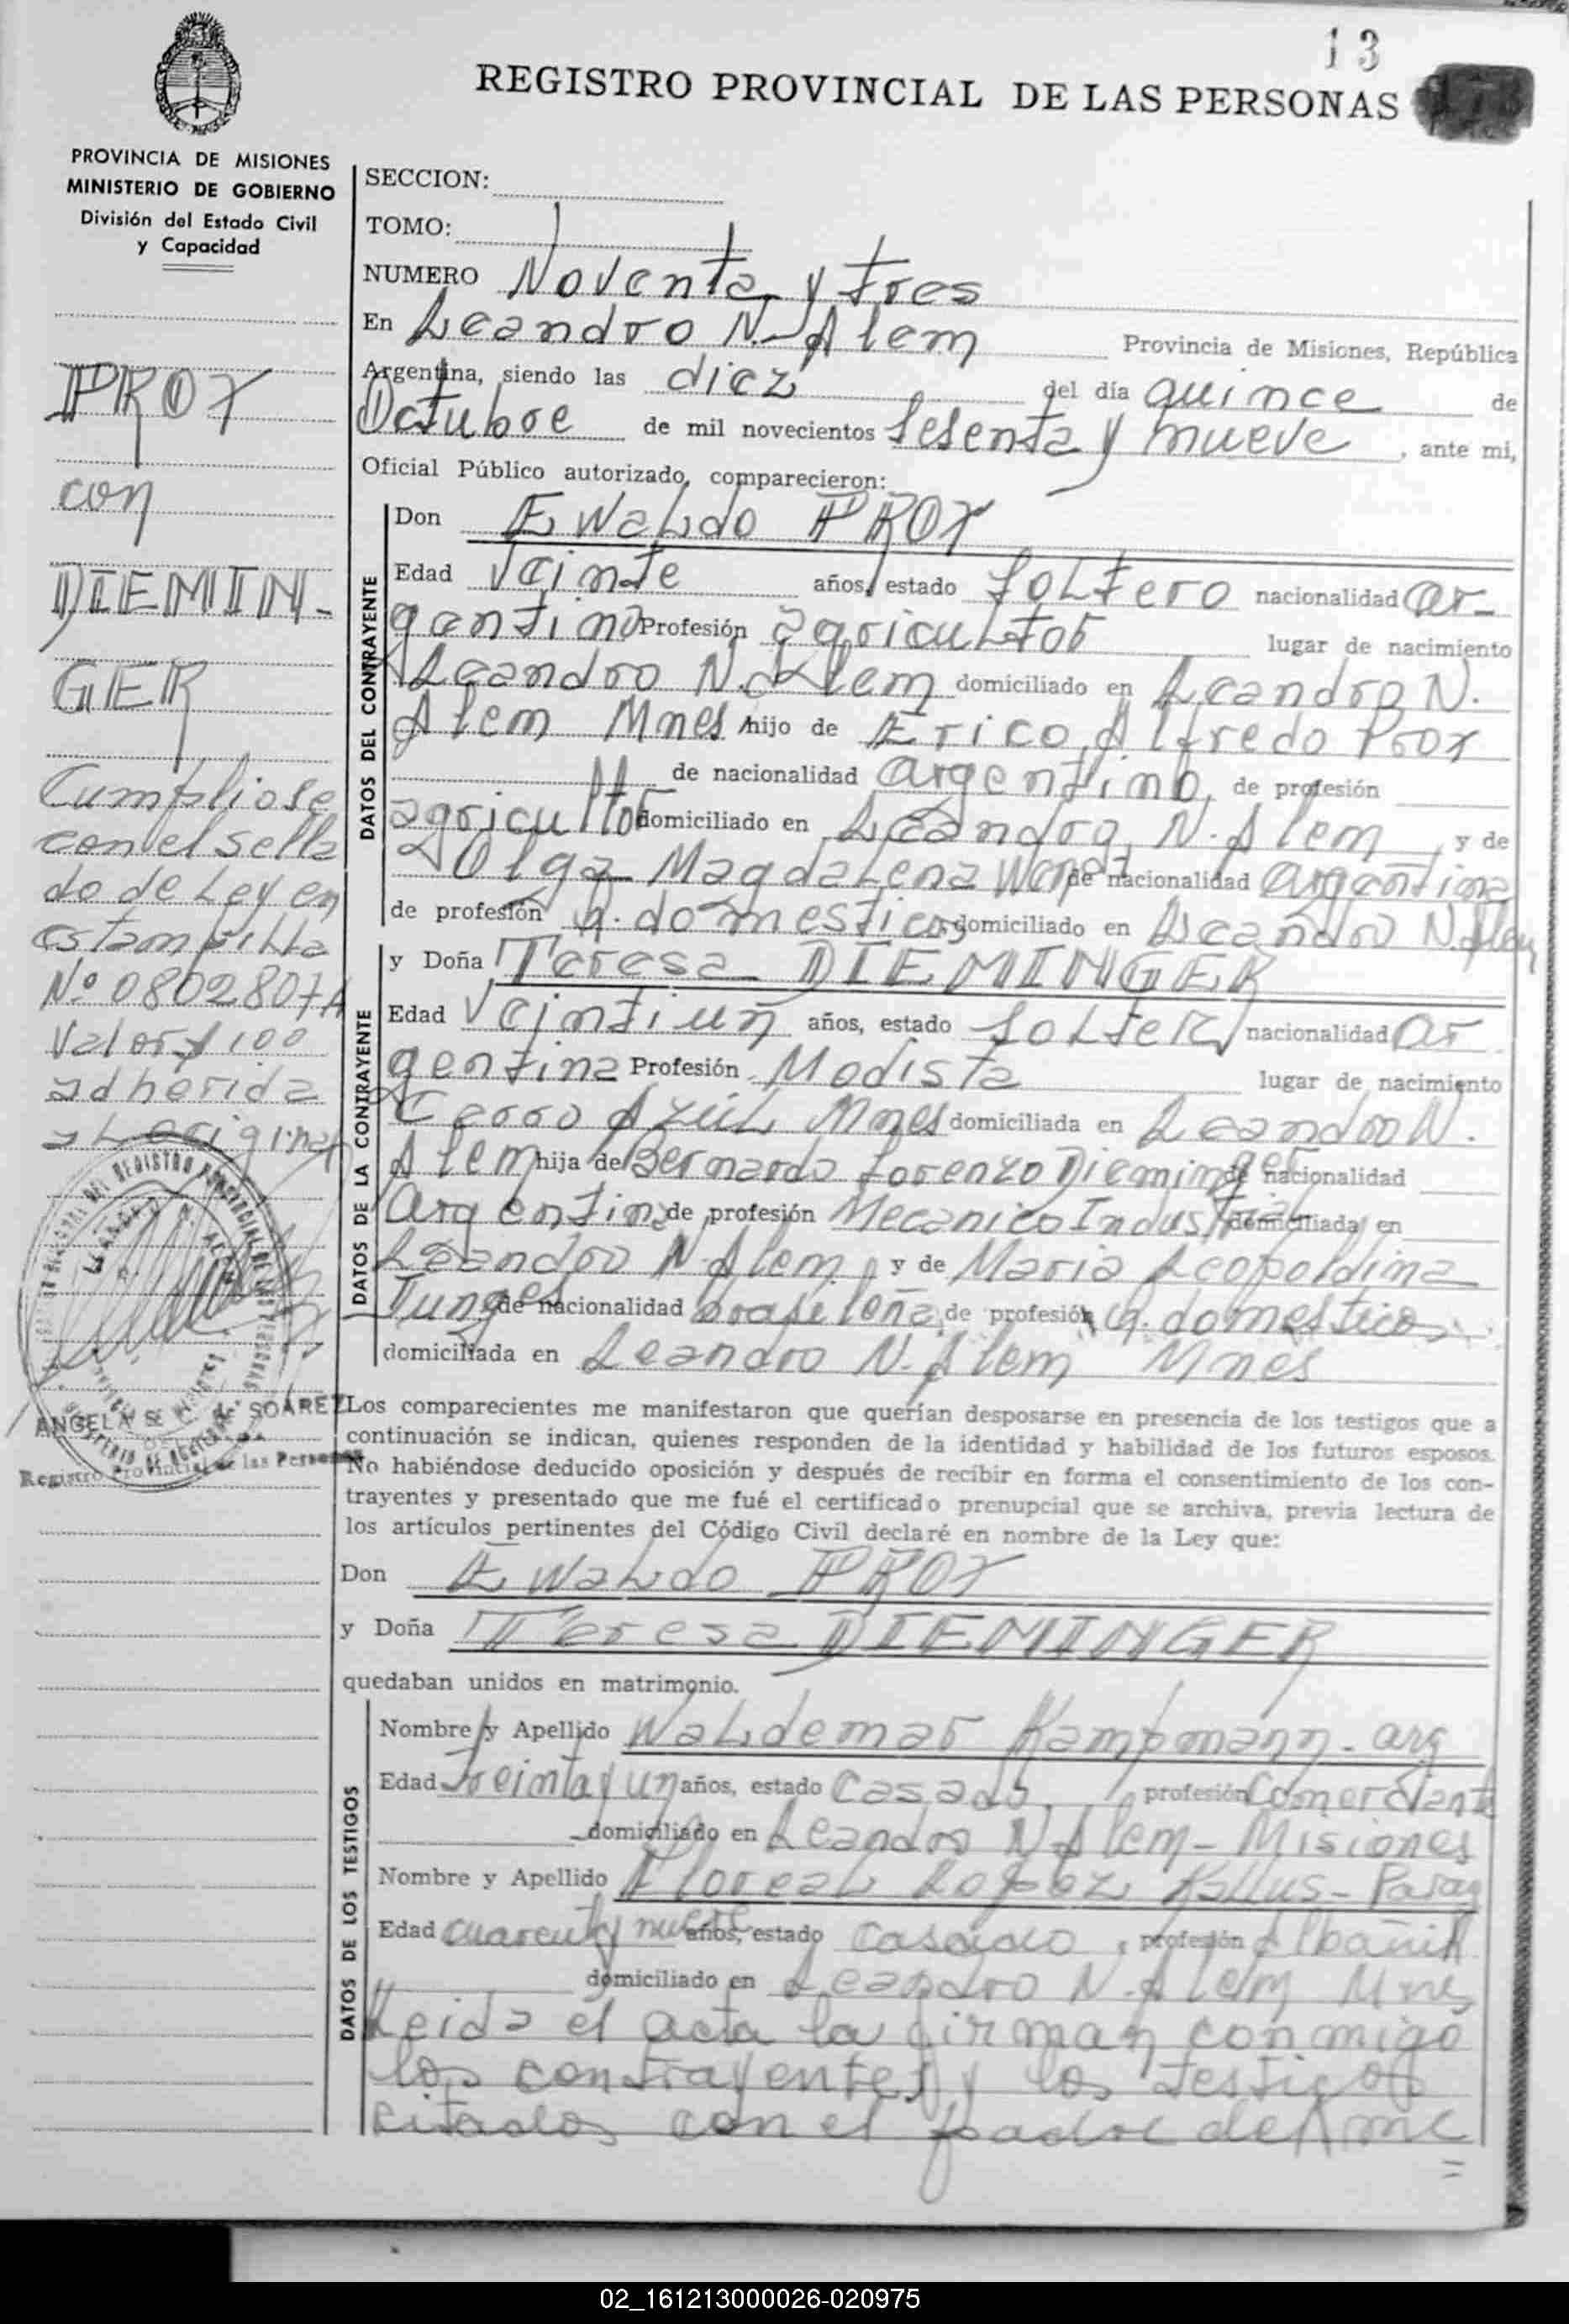 13
REGISTRO PROVINCIAL DE LAS PERSONAS
PROVINCIA DE MISIONES
MINISTERIO DE GOBIERNO
División del Estado Civil
y Capacidad
PROX
con
DIEMIN-
GER
Cumpliose
con el sella
do de Ley en
estampilla
Nº 0802807A
Valor $ 100
adherida
al original
ANGELA SOAREZ
Registro Provincial de las Personas
SECCION:
TOMO:
NUMERO Noventa y tres
En Leandro N. Alem Provincia de Misiones, República
Argentina, siendo las diez del día quince de
Octubre de mil novecientos sesenta y nueve, ante mi,
Oficial Público autorizado, comparecieron:
DATOS DEL CONTRAYENTE
Don Ewaldo PROX
Edad Veinte años, estado Soltero nacionalidad ar-
gentino Profesión agricultor lugar de nacimiento
Leandro N. Alem domiciliado en Leandro N.
Alem Mnes hijo de Erico Alfredo Prox
de nacionalidad argentino, de profesión
agricultor domiciliado en Leandro N. Alem, y de
Olga Magdalena de nacionalidad argentina
de profesión q. domesticos domiciliado en Leandro N. Alem
DATOS DE LA CONTRAYENTE
y Doña Teresa DIEMINGER
Edad Veintiun años, estado soltera nacionalidad ar
gentina Profesión Modista lugar de nacimiento
Cerro Azul Mnes domiciliada en Leandro N.
Alem hija de Bernardo Lorenzo Dieminger de nacionalidad
argentina de profesión Mecanico Industrial domiciliada en
Leandro N. Alem, y de Maria Leopoldina
Tunges de nacionalidad brasileña de profesión q. domesticos
domiciliada en Leandro N. Alem Mnes
Los comparecientes me manifestaron que querían desposarse en presencia de los testigos que a
continuación se indican, quienes responden de la identidad y habilidad de los futuros esposos.
No habiéndose deducido oposición y después de recibir en forma el consentimiento de los con-
trayentes y presentado que me fué el certificado prenupcial que se archiva, previa lectura de
los artículos pertinentes del Código Civil declaré en nombre de la Ley que:
Don Ewaldo PROX
y Doña Teresa DIEMINGER
quedaban unidos en matrimonio.
DATOS DE LOS TESTIGOS
Nombre y Apellido Waldemar Kampmann - arg
Edad Treinta y un años, estado Casado, profesión Comerciante
domiciliado en Leandro N. Alem - Misiones
Nombre y Apellido Floreal Lopez Kallus - Parag
Edad cuarenta y nueve años, estado casado, profesión Albañil
domiciliado en Leandro N. Alem Mnes
Leida el acta la firman conmigo
los contrayentes y los testigos
citados con el padre de
02_161213000026-020975